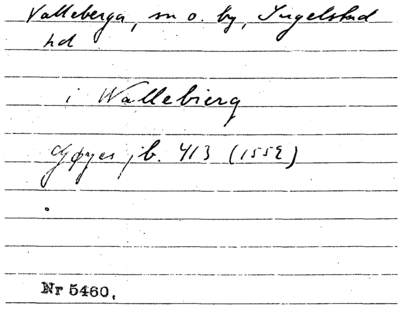 Valleberga, sn o. by, Ingelstad
hd
i Wallebierg
Gøyes jb. 413 (1552)
Nr 5460.